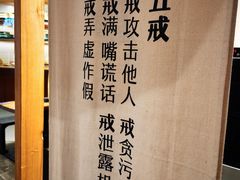 五戒
戒攻击他人 戒贪污
戒满嘴谎话 戒泄露
戒弄虚作假